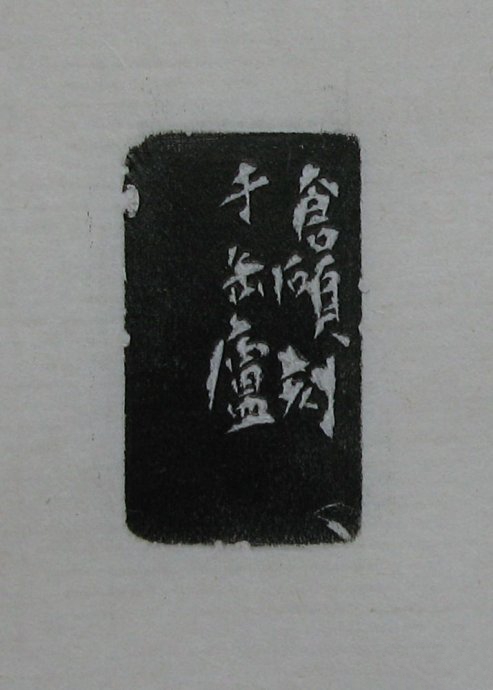 倉碩刻
于缶廬